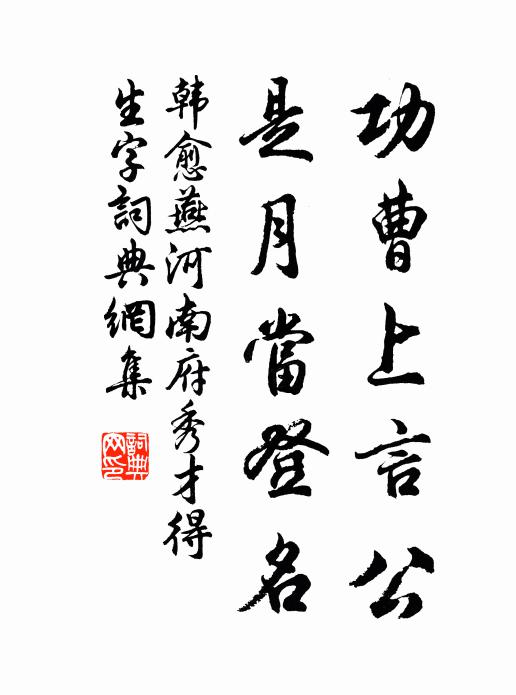 功曹上言公
是月當登名
韩愈燕河南府秀才得
生字詞典網集
詞典
网印